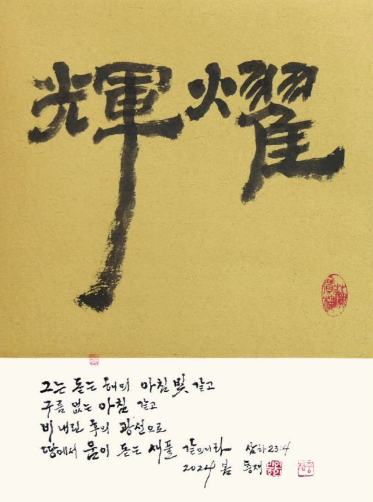 輝耀
그는 돋는 해의 아침 빛 같고
구름 없는 아침 같고
비 내린 후의 광선으로
땅에서 움이 돋는 새풀 같으니라 삼하23:4
2024 봄